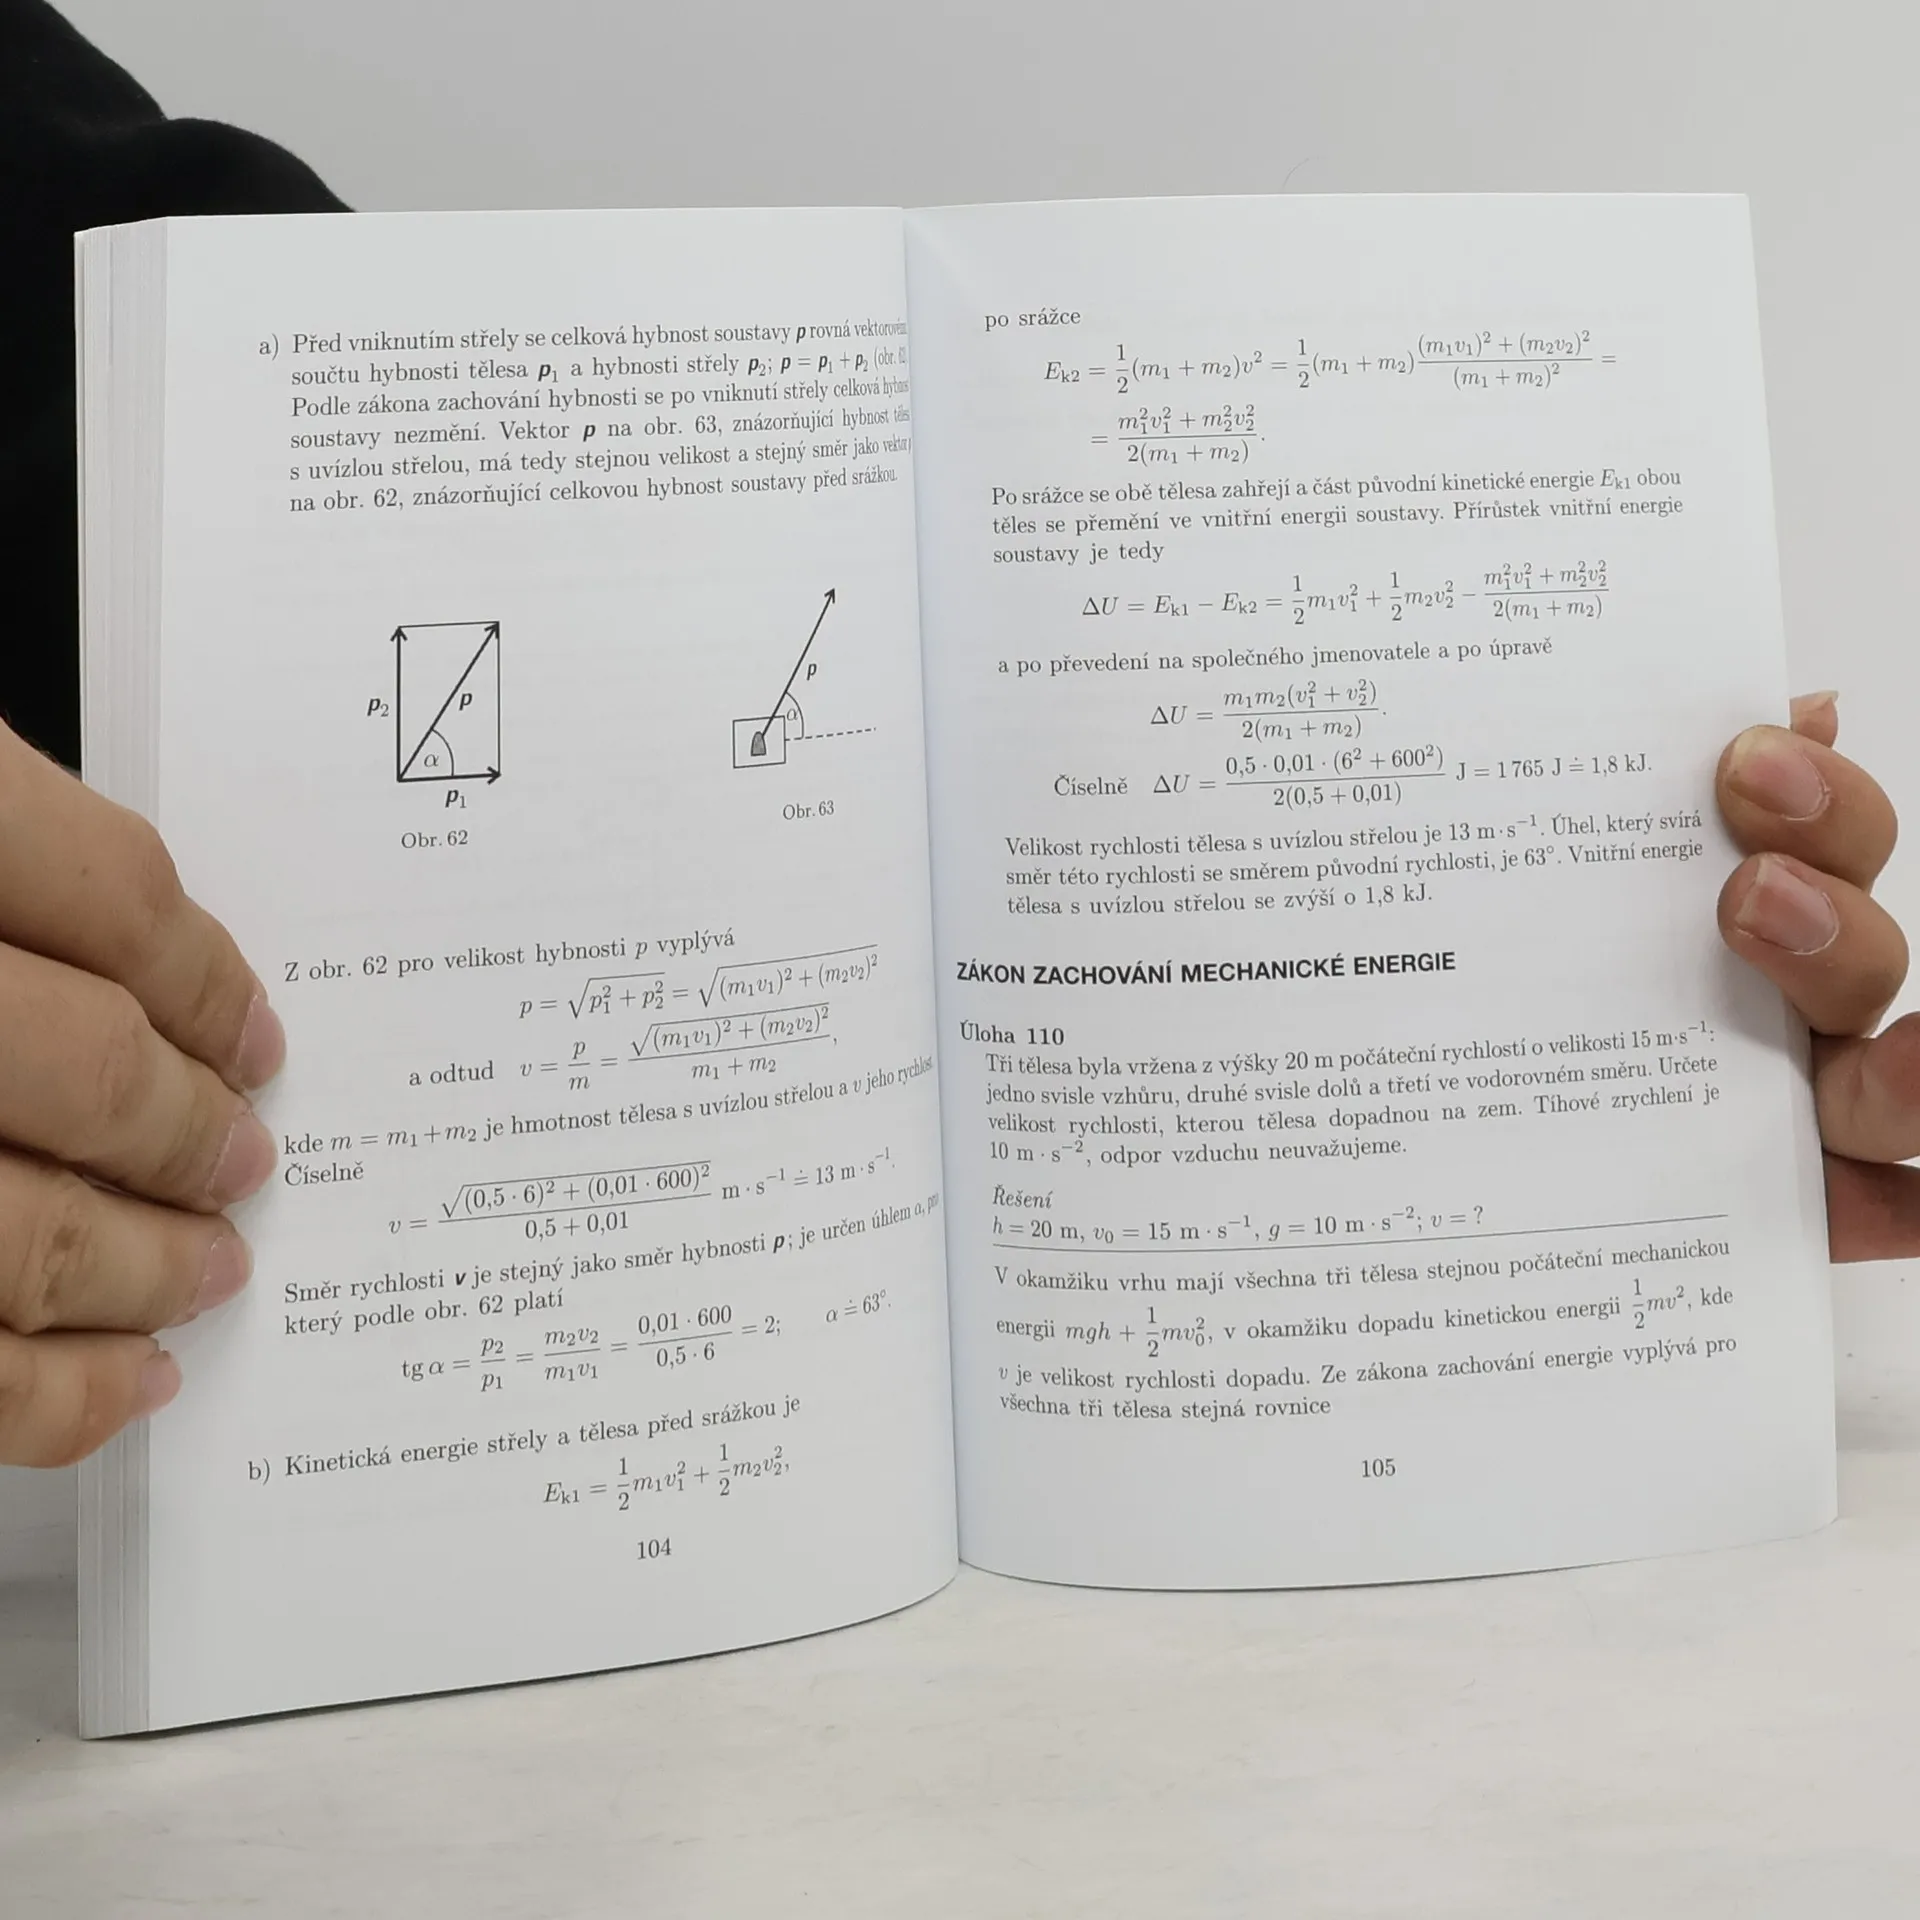 a) Před vniknutím střely se celková hybnost soustavy p rovná vektorovému
součtu hybnosti tělesa p₁ a hybnosti střely p₂; p = p₁ + p₂ (obr. 62
Podle zákona zachování hybnosti se po vniknutí střely celková hybnost
soustavy nezmění. Vektor p na obr. 63, znázorňující hybnost
s uvízlou střelou, má tedy stejnou velikost a stejný směr jako vektor p
na obr. 62, znázorňující celkovou hybnost soustavy před srážkou.
p₂ p α p₁
Obr. 62
p α
Obr. 63
Z obr. 62 pro velikost hybnosti p vyplývá
p = √(p₁² + p₂²) = √((m₁v₁)² + (m₂v₂)²)
a odtud v = p/m = √((m₁v₁)² + (m₂v₂)²)/(m₁ + m₂),
kde m = m₁ + m₂ je hmotnost tělesa s uvízlou střelou a v jeho rychlost.
Číselně
v = √((0,5 · 6)² + (0,01 · 600)²)/(0,5 + 0,01) m · s⁻¹ ≐ 13 m · s⁻¹.
Směr rychlosti v je stejný jako směr hybnosti p; je určen úhlem α, pro
který podle obr. 62 platí
tg α = p₂/p₁ = m₂v₂/m₁v₁ = (0,01 · 600)/(0,5 · 6) = 2; α ≐ 63°.
b) Kinetická energie střely a tělesa před srážkou je
Eₖ₁ = ½m₁v₁² + ½m₂v₂²,
104
po srážce
Eₖ₂ = ½(m₁ + m₂)v² = ½(m₁ + m₂)((m₁v₁)² + (m₂v₂)²)/(m₁ + m₂)² =
= (m₁²v₁² + m₂²v₂²)/(2(m₁ + m₂)).
Po srážce se obě tělesa zahřejí a část původní kinetické energie Eₖ₁ obou
těles se přemění ve vnitřní energii soustavy. Přírůstek vnitřní energie
soustavy je tedy
ΔU = Eₖ₁ − Eₖ₂ = ½m₁v₁² + ½m₂v₂² − (m₁²v₁² + m₂²v₂²)/(2(m₁ + m₂))
a po převedení na společného jmenovatele a po úpravě
ΔU = m₁m₂(v₁² + v₂²)/(2(m₁ + m₂)).
Číselně ΔU = 0,5 · 0,01 · (6² + 600²)/(2(0,5 + 0,01)) J = 1 765 J ≐ 1,8 kJ.
Velikost rychlosti tělesa s uvízlou střelou je 13 m·s⁻¹. Úhel, který svírá
směr této rychlosti se směrem původní rychlosti, je 63°. Vnitřní energie
tělesa s uvízlou střelou se zvýší o 1,8 kJ.
ZÁKON ZACHOVÁNÍ MECHANICKÉ ENERGIE
Úloha 110
Tři tělesa byla vržena z výšky 20 m počáteční rychlostí o velikosti 15 m·s⁻¹:
jedno svisle vzhůru, druhé svisle dolů a třetí ve vodorovném směru. Určete
velikost rychlosti, kterou tělesa dopadnou na zem. Tíhové zrychlení je
10 m · s⁻², odpor vzduchu neuvažujeme.
Řešení
h = 20 m, v₀ = 15 m · s⁻¹, g = 10 m · s⁻²; v = ?
V okamžiku vrhu mají všechna tři tělesa stejnou počáteční mechanickou
energii mgh + ½mv₀², v okamžiku dopadu kinetickou energii ½mv², kde
v je velikost rychlosti dopadu. Ze zákona zachování energie vyplývá pro
všechna tři tělesa stejná rovnice
105